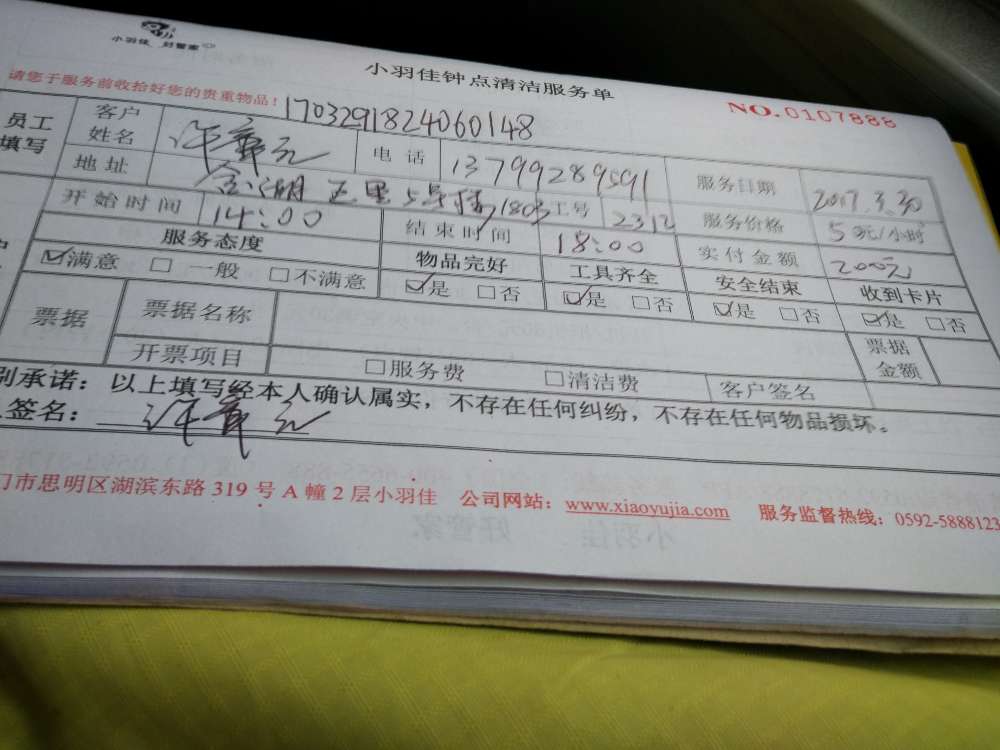 小羽佳 好管家
小羽佳钟点清洁服务单
请您于服务前收拾好您的贵重物品！
1703291824060148
NO.0107888
员工填写
客户姓名 许章元 电话 13799289591 服务日期 2017.3.30
地址 金湖五里5号楼1803 工号 2312 服务价格 5元/小时
开始时间 14:00 结束时间 18:00 实付金额 200元
服务态度 物品完好 工具齐全 安全结束 收到卡片
☑满意 □一般 □不满意 ☑是 □否 ☑是 □否 ☑是 □否 ☑是 □否
票据 票据名称 票据金额
开票项目 □服务费 □清洁费 客户签名
别承诺：以上填写经本人确认属实，不存在任何纠纷，不存在任何物品损坏。
签名：许章元
门市思明区湖滨东路 319 号 A 幢 2 层小羽佳 公司网站：www.xiaoyujia.com 服务监督热线：0592-5888123